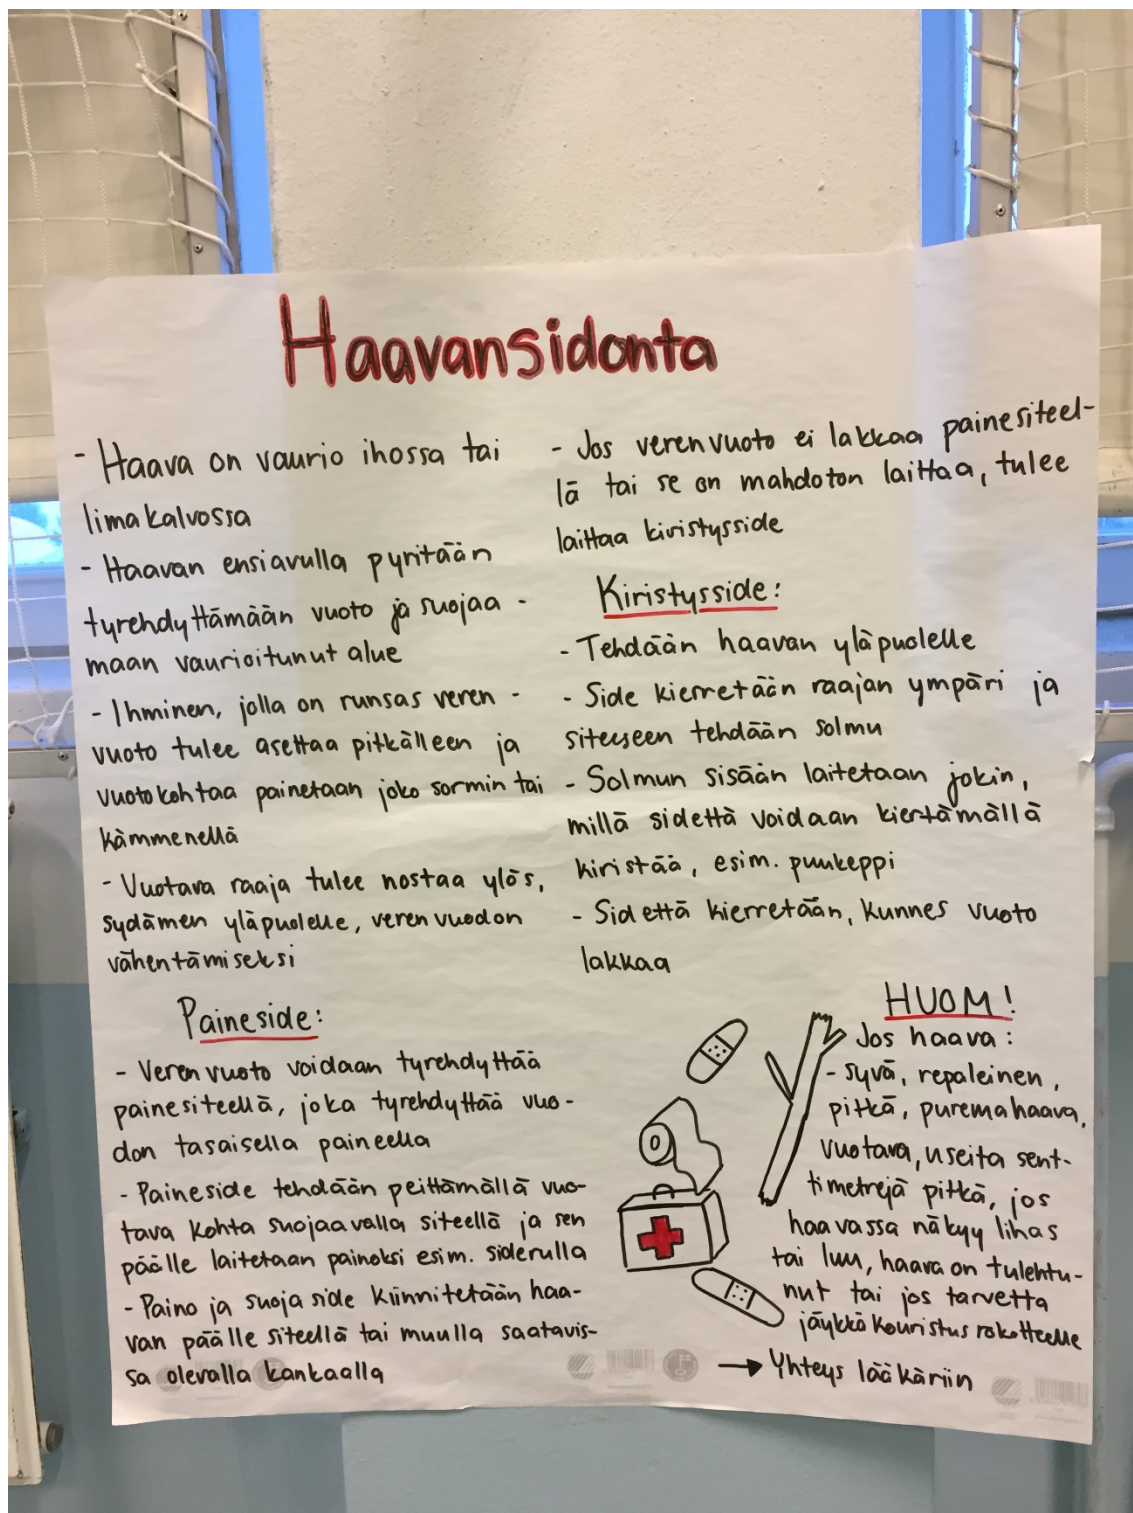 Haavansidonta
- Haava on vaurio ihossa tai
limakalvossa
- Haavan ensiavulla pyritään
tyrehdyttämään vuoto ja suojaa-
maan vaurioitunut alue
- Ihminen, jolla on runsas veren-
vuoto tulee asettaa pitkälleen ja
vuotokohtaa painetaan joko sormin tai
kämmenellä
- Vuotava raaja tulee nostaa ylös,
sydämen yläpuolelle, verenvuodon
vähentämiseksi
Paineside:
- Verenvuoto voidaan tyrehdyttää
painesiteellä, joka tyrehdyttää vuo-
don tasaisella paineella
- Paineside tehdään peittämällä vuo-
tava kohta suojaavalla siteellä ja sen
päälle laitetaan painoksi esim. siderulla
- Paino ja suojaside kiinnitetään haa-
van päälle siteellä tai muulla saatavis-
sa olevalla kankaalla
- Jos verenvuoto ei lakkaa painesiteel-
lä tai se on mahdoton laittaa, tulee
laittaa kiristysside
Kiristysside:
- Tehdään haavan yläpuolelle
- Side kierretään raajan ympäri ja
siteeseen tehdään solmu
- Solmun sisään laitetaan jokin,
millä sidettä voidaan kiertämällä
kiristää, esim. puukeppi
- Sidettä kierretään, kunnes vuoto
lakkaa
HUOM!
Jos haava:
- syvä, repaleinen,
pitkä, puremahaava,
vuotava, useita sent-
timetrejä pitkä, jos
haavassa näkyy lihas
tai luu, haava on tulehtu-
nut tai jos tarvetta
jäykkäkouristusrokotteelle
→ Yhteys lääkäriin